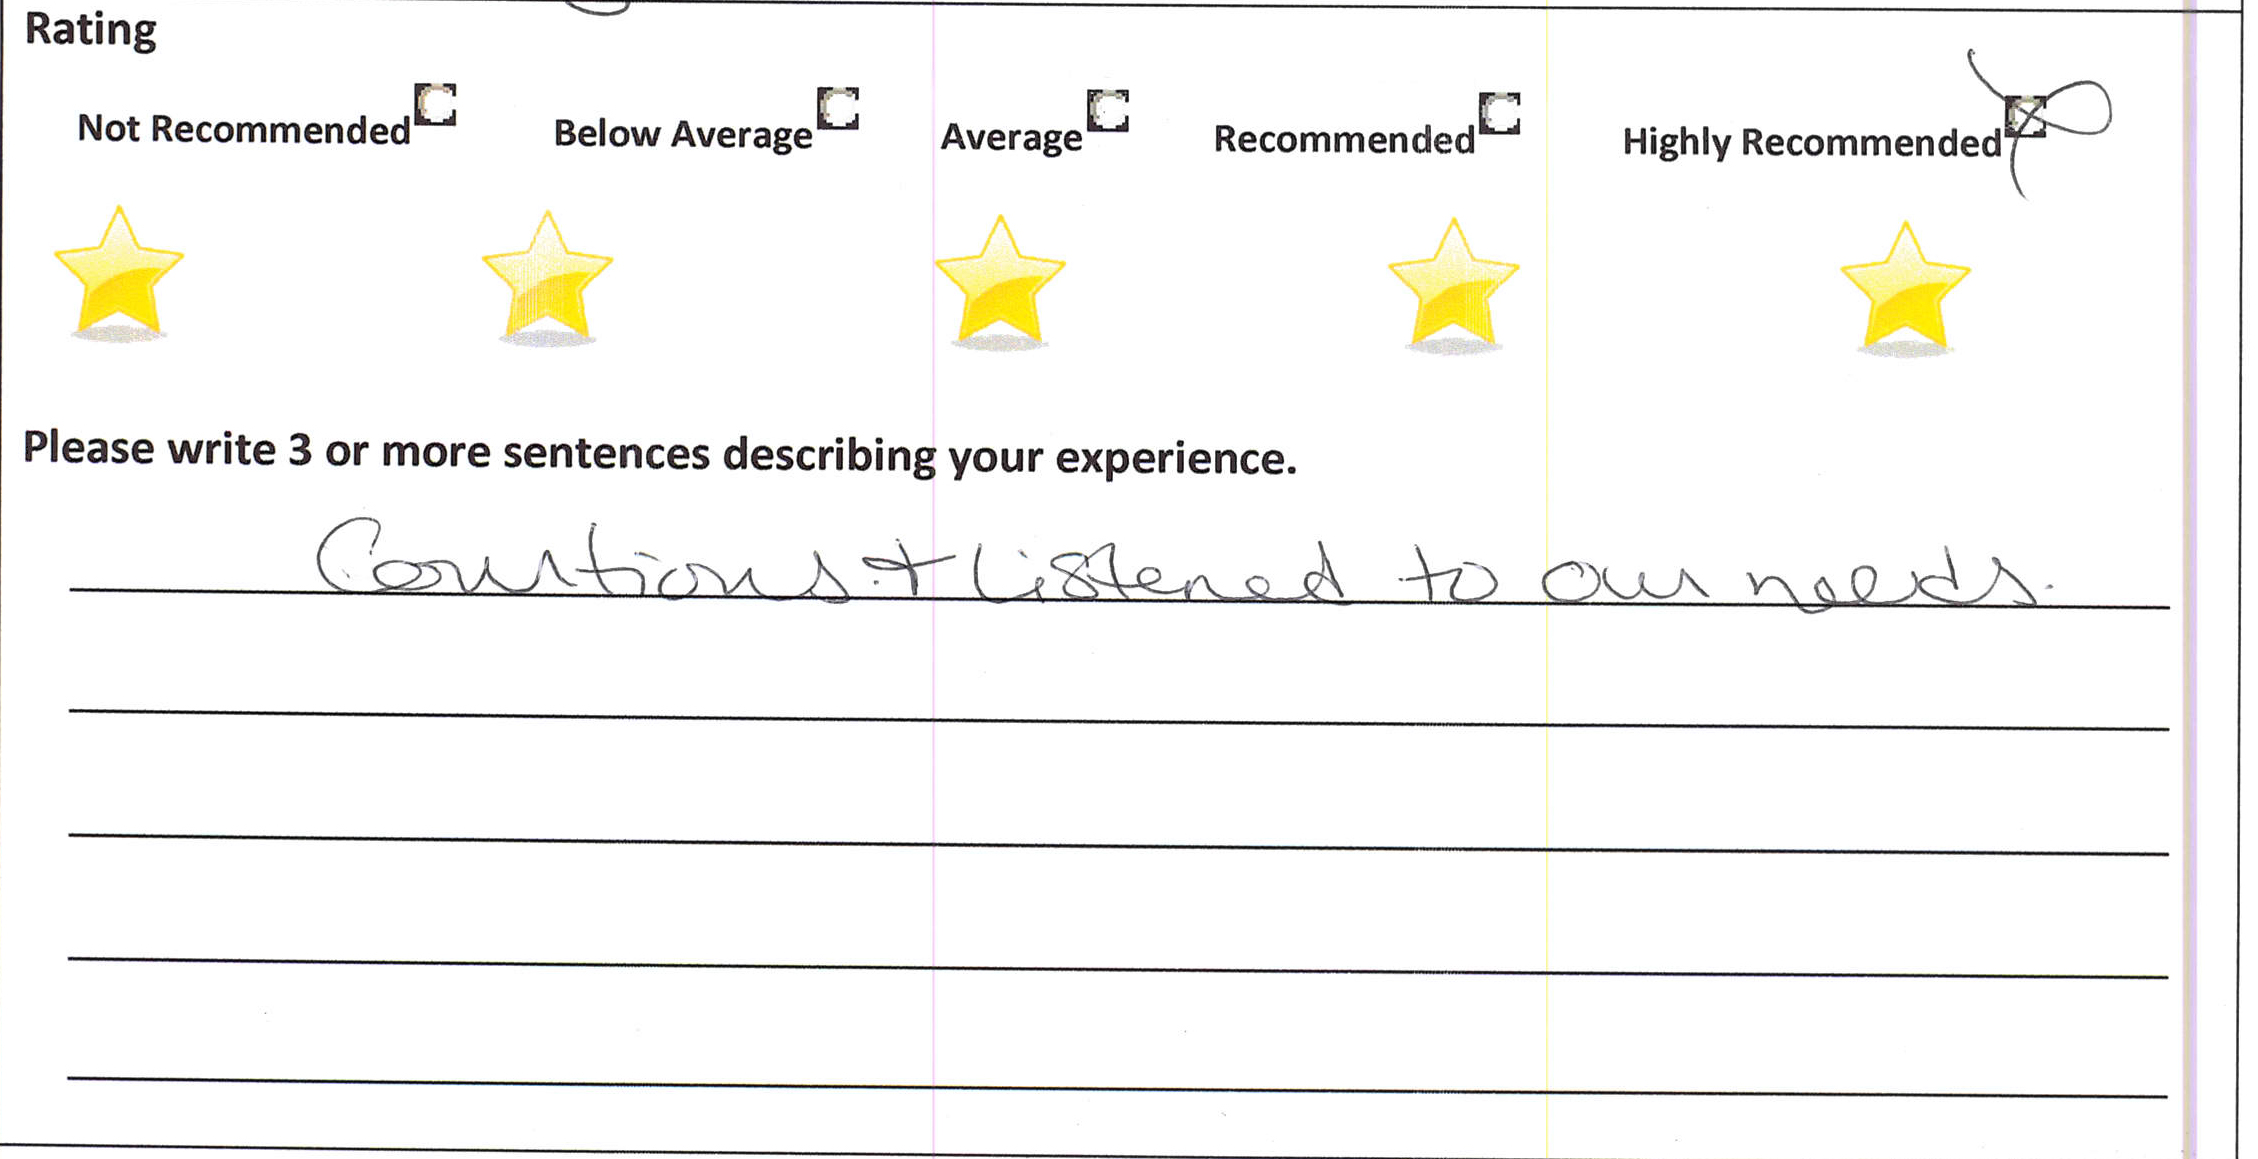 Rating
Not Recommended Below Average Average Recommended Highly Recommended
Please write 3 or more sentences describing your experience.
Courtious + Listened to our needs.